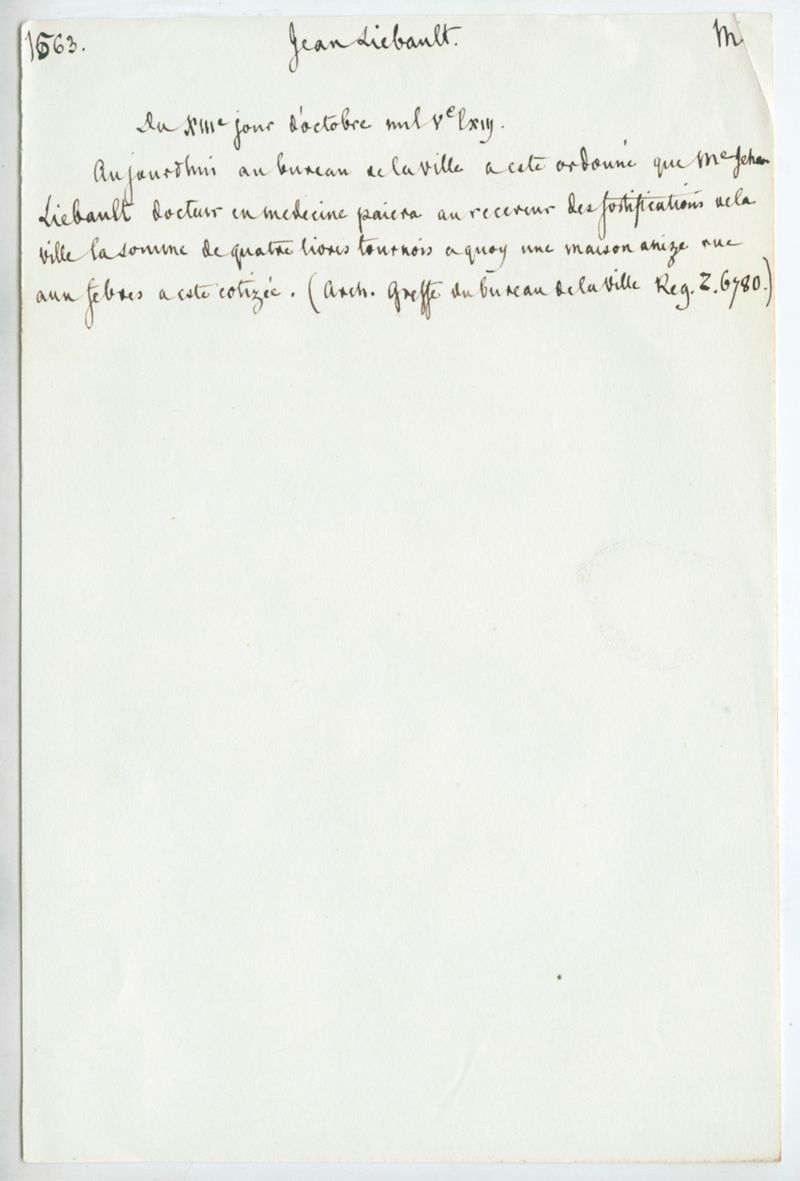 1563. Jean Liebault. M
Du XIIIe jour d'octobre mil Ve lxiij.
Aujourdhui au bureau de la ville a este ordonné que Me Jehan
Liebault docteur en medecine paiera au receveur des fortifications de la
ville la somme de quatre livres tournois a quoy une maison assize rue
aux febres a este cotizée. (Arch. Greffe du bureau de la ville Reg. Z. 6780.)